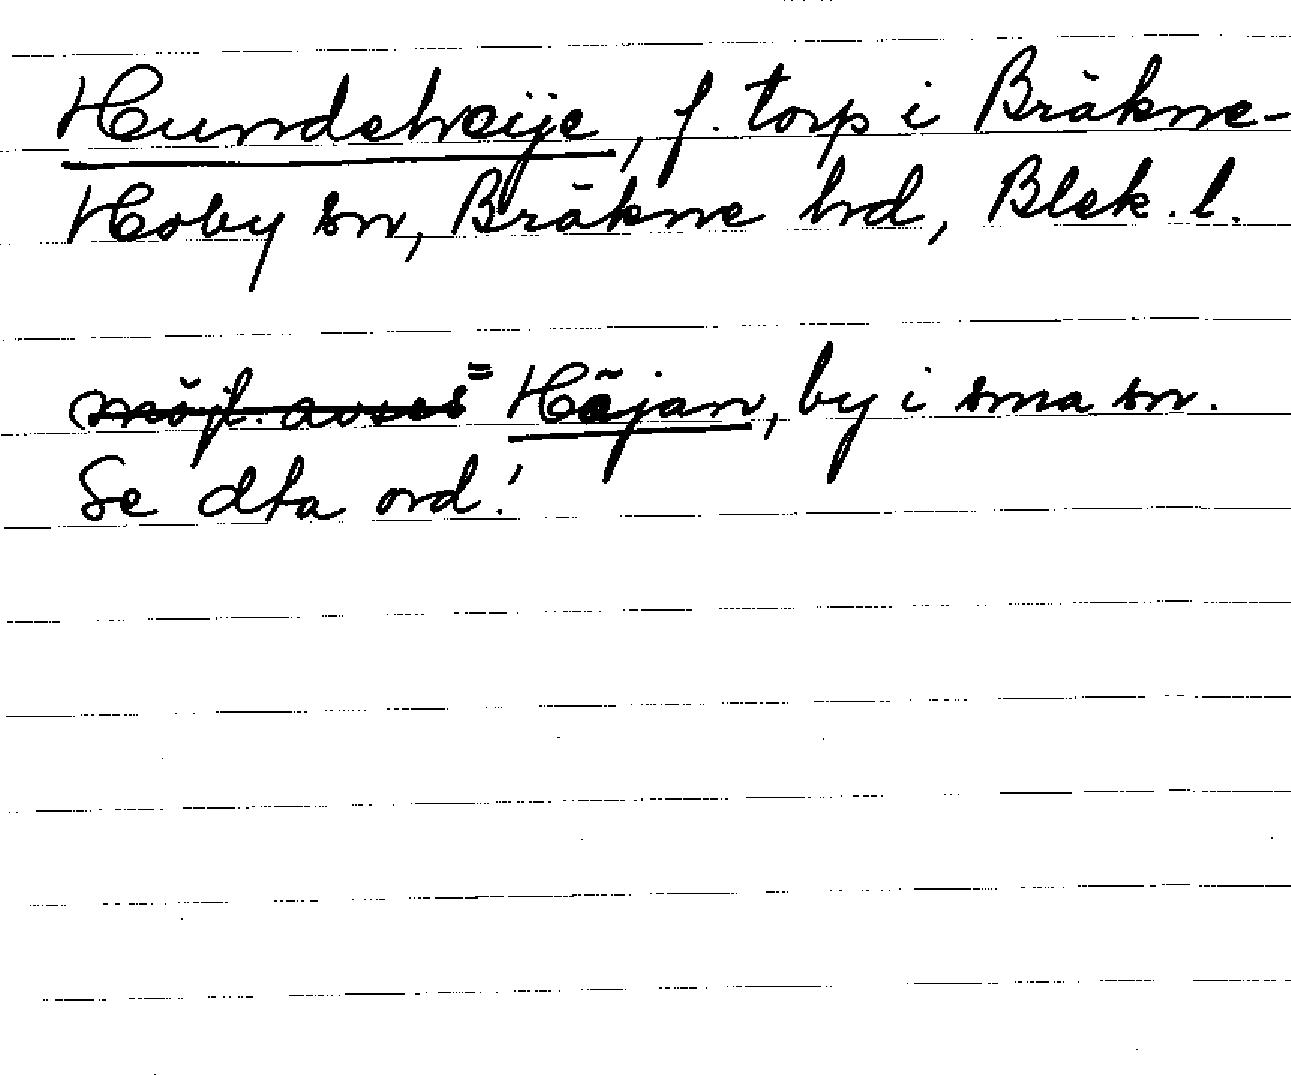 Hundeheije, f. torp i Bräkne-
Hoby sn, Bräkne hd, Blek. l.
möjl. avses = Häjan, by i sma sn.
Se dta ord!